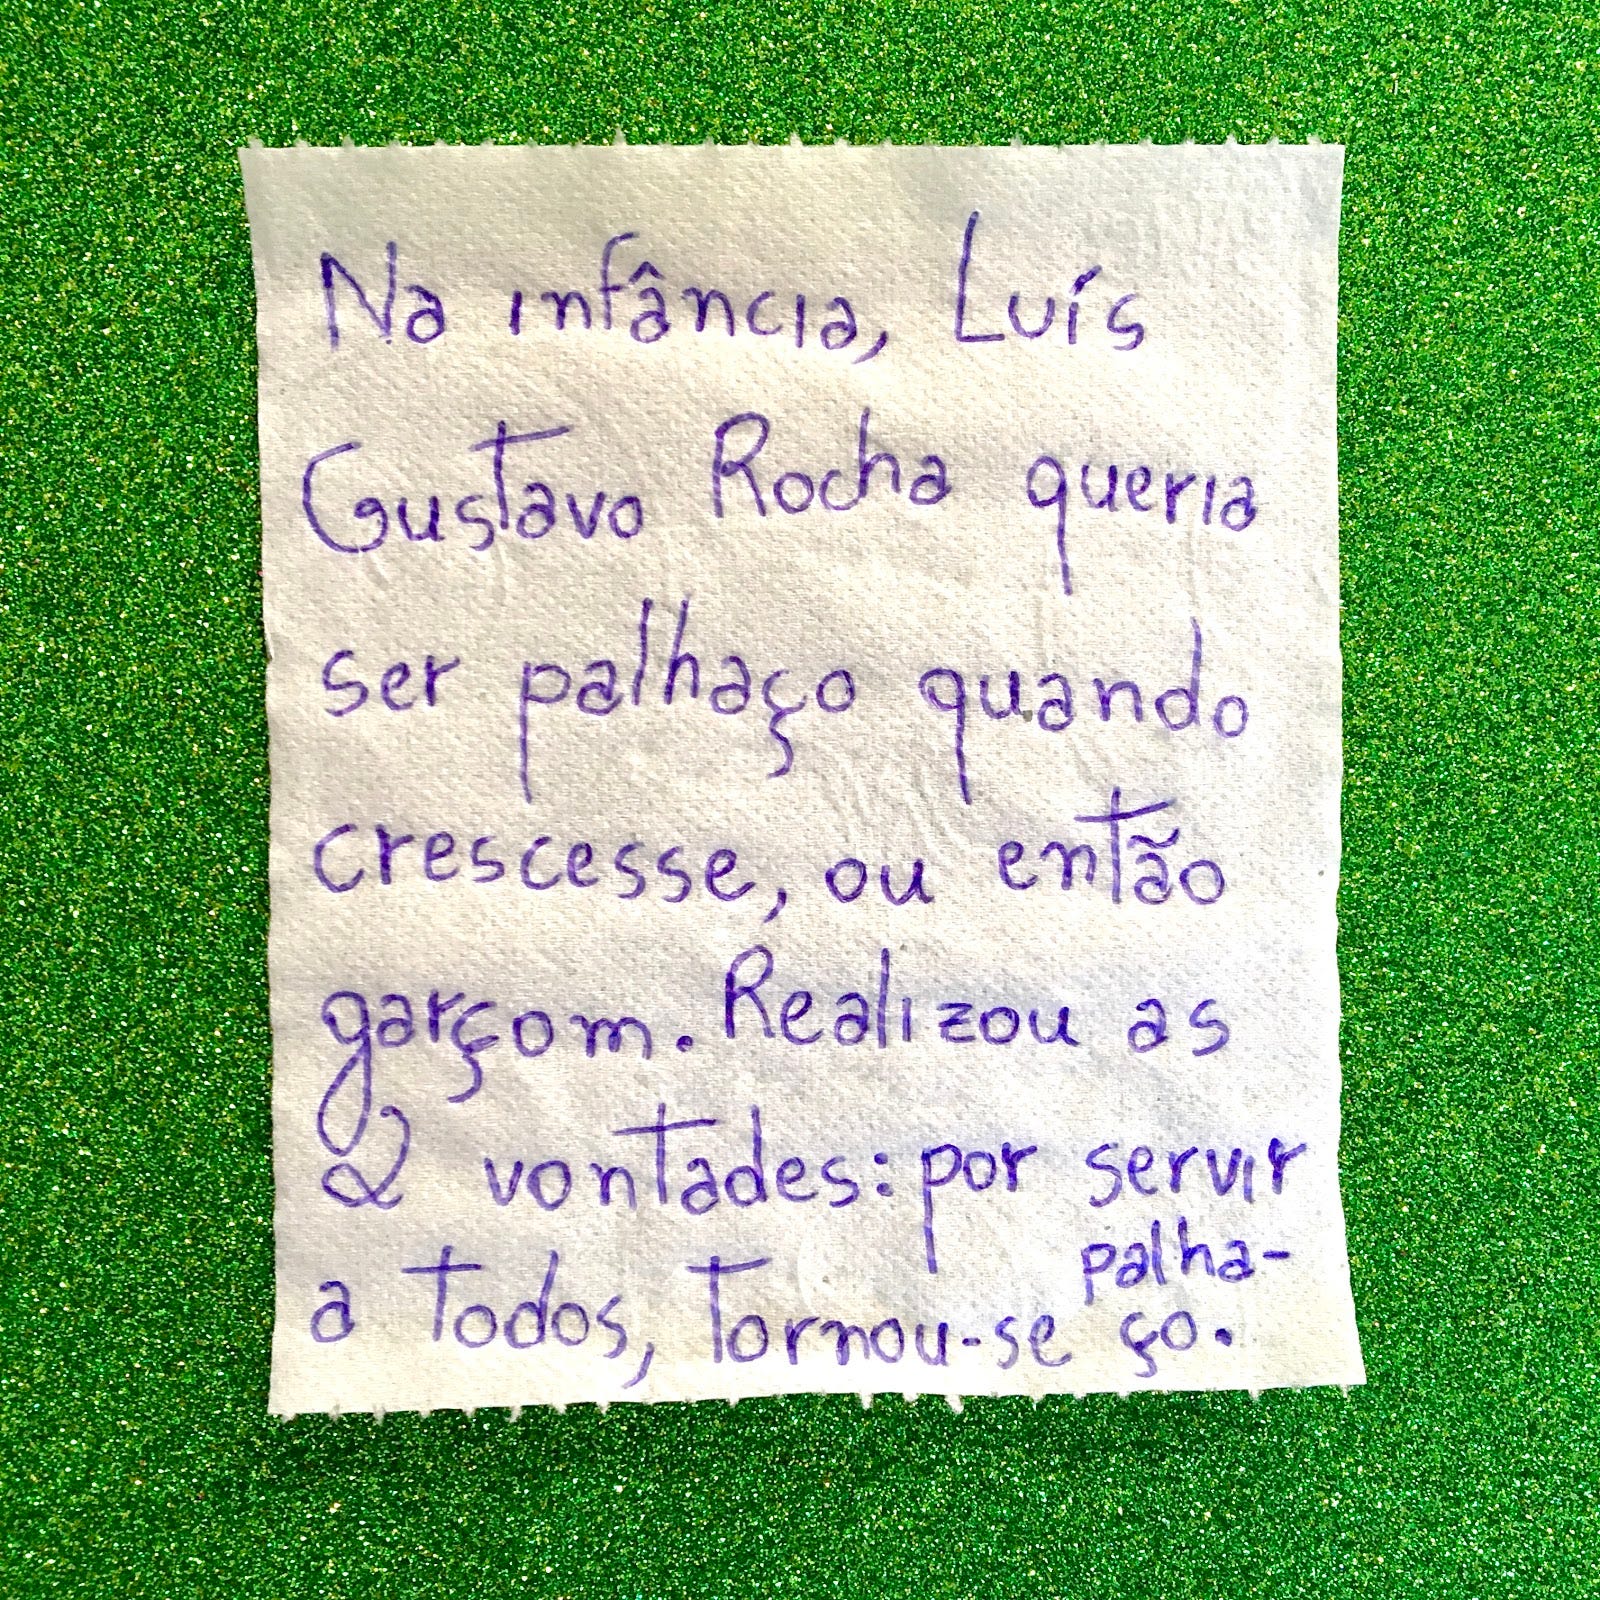 Na infância, Luís
Gustavo Rocha queria
ser palhaço quando
crescesse, ou então
garçom. Realizou as
2 vontades: por servir
a todos, tornou-se palha-
ço.